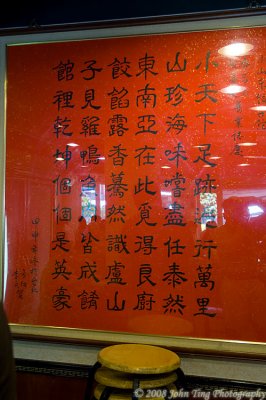 小天下足跡行萬里
山珍海味嚐盡任泰然
東南亞在此覓得良廚
餃餡露香驀然識廬山
子見雞鴨魚肉皆成餚
館裡乾坤個個是英豪
© 2008 John Ting Photography